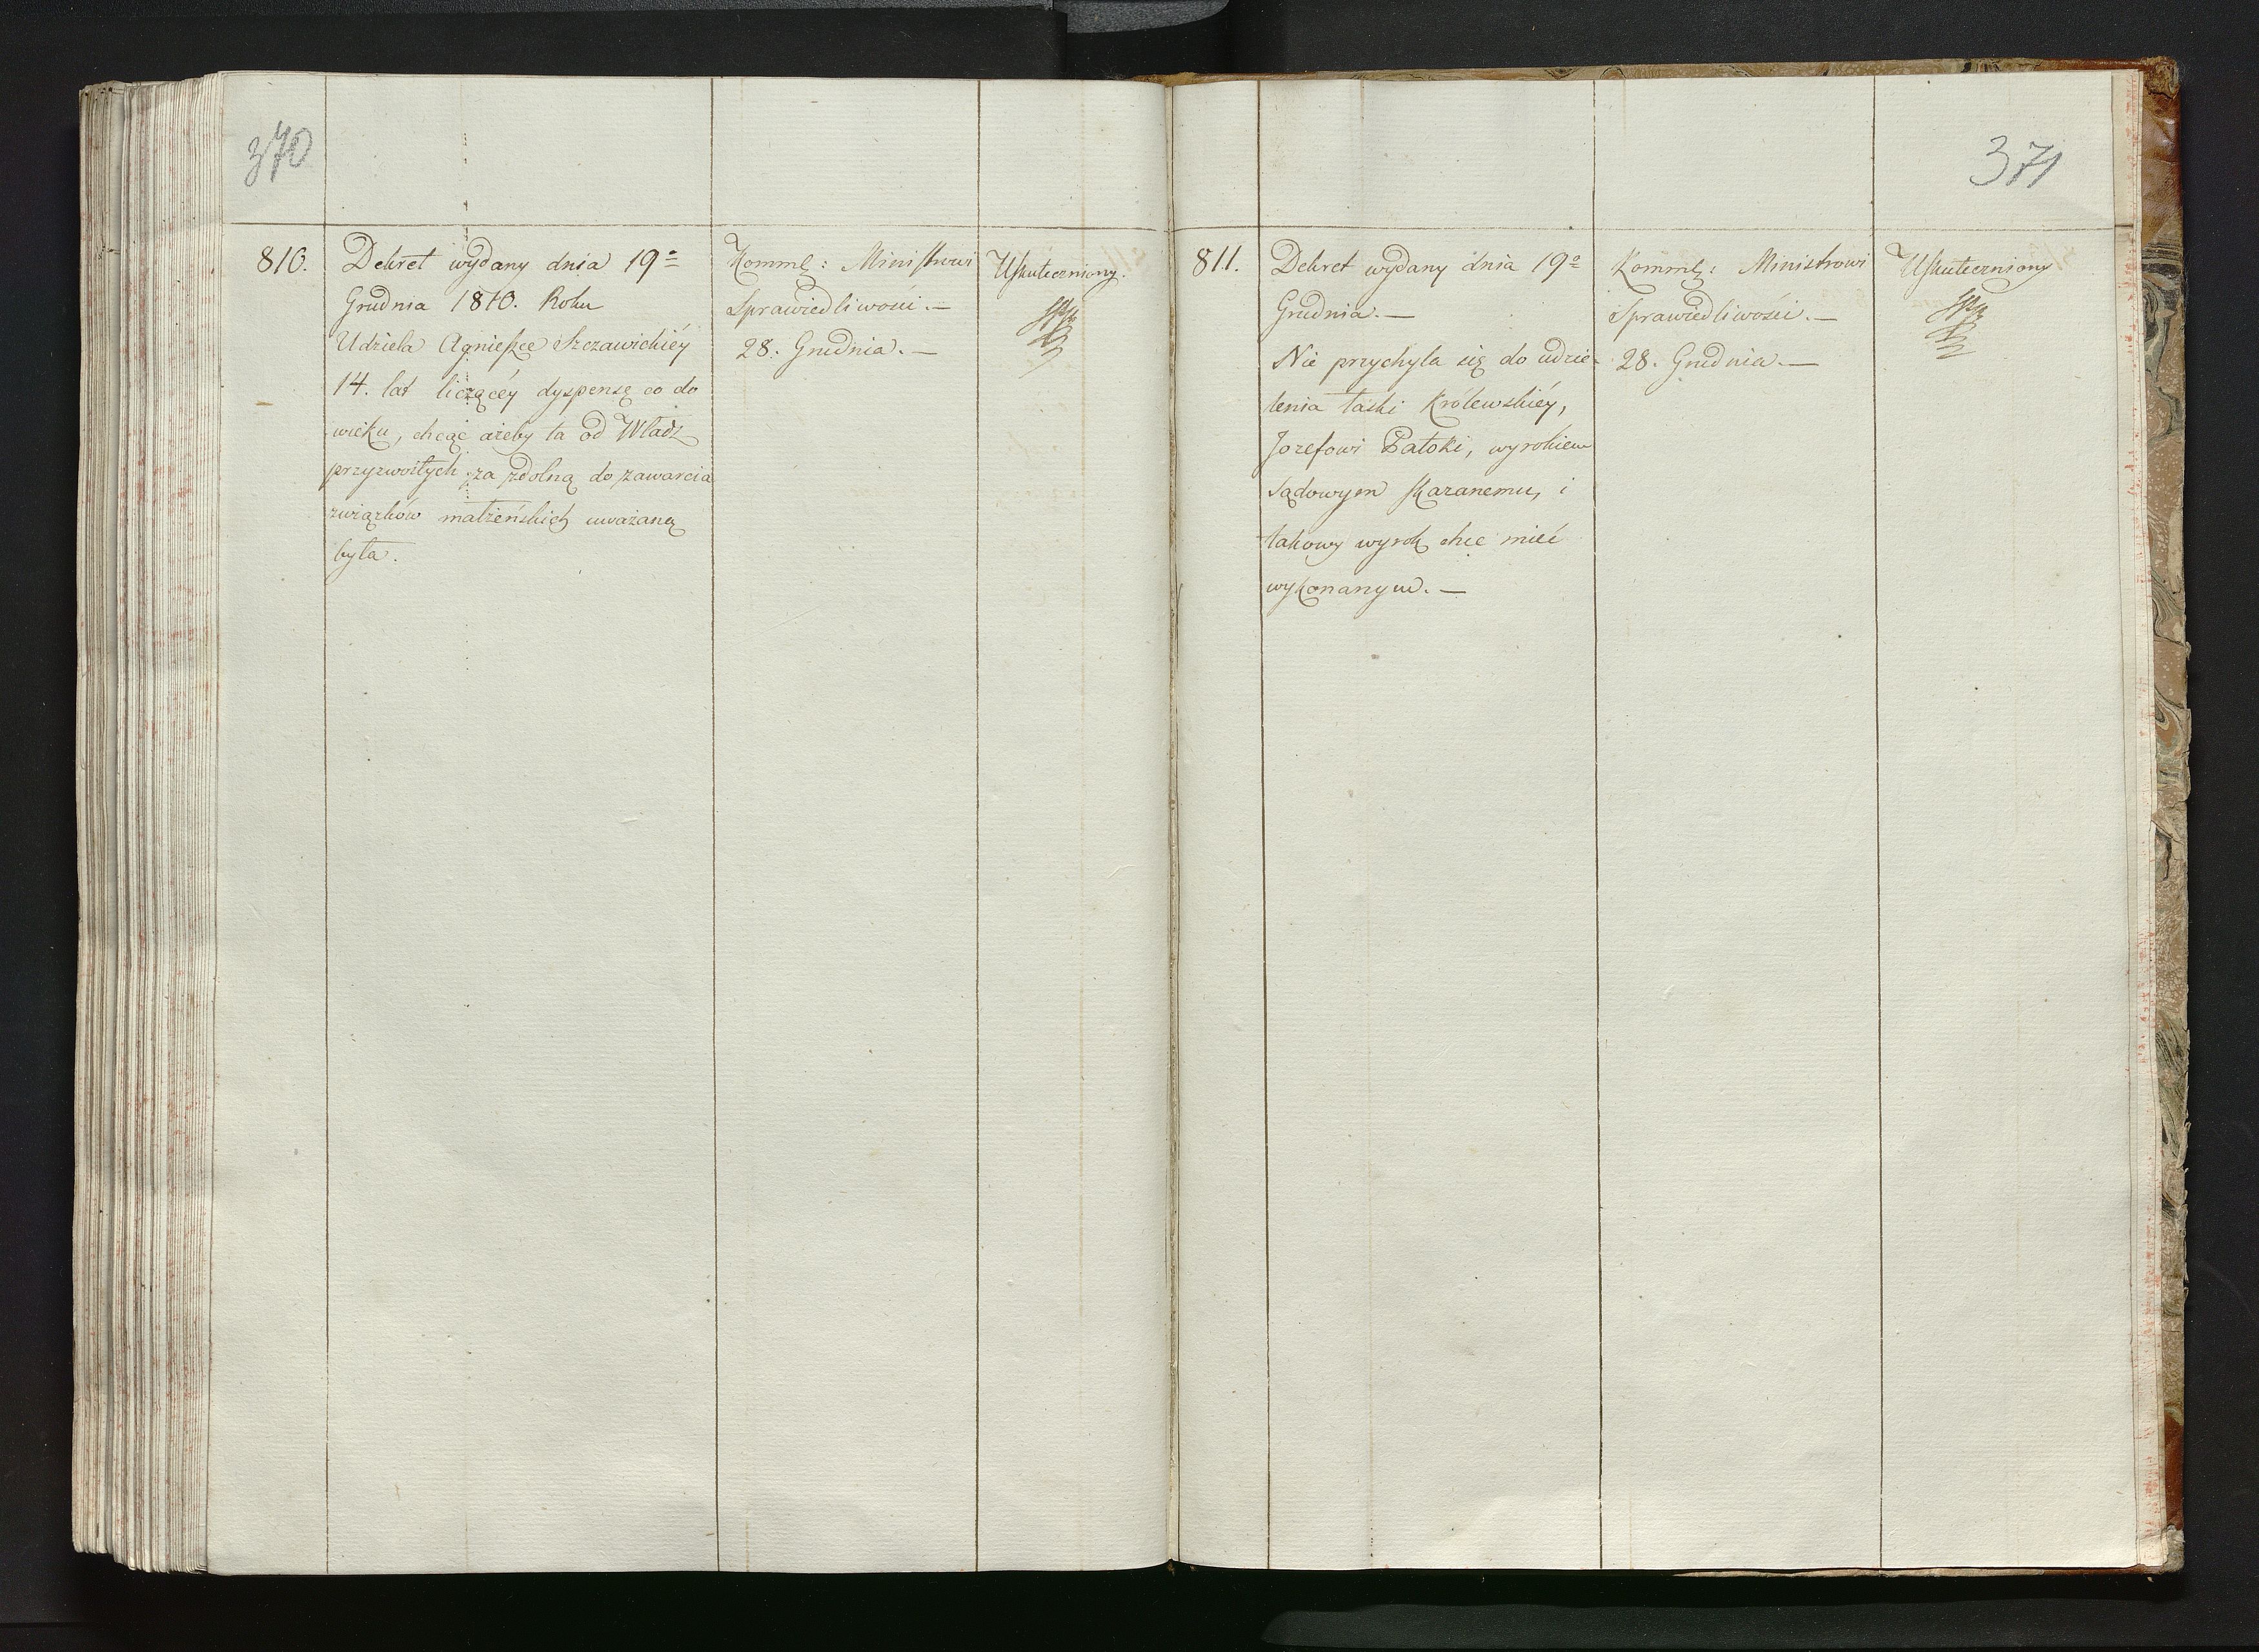 370
810.
Dekret wydany dnia 19º
Grudnia 1810. Roku
Udziela Agnieszce Szczawickiéy
14. lat liczącéy dyspensę co do
wieku, chcąc ażeby ta od Władz
przyzwoitych za zdolną do zawarcia
związków małżeńskich uważaną
była.
Kommk: Ministrowi
Sprawiedliwości. —
28. Grudnia. —
Uskuteczniony.
371
811.
Dekret wydany dnia 19º
Grudnia. —
Nie przychyla się do udzie-
lenia łaski Królewskiéy,
Jozefowi Patoki, wyrokiem
sądowym skazanemu, i
takowy wyrok chce mieć
wykonanym. —
Kommk: Ministrowi
Sprawiedliwości. —
28. Grudnia. —
Uskuteczniony